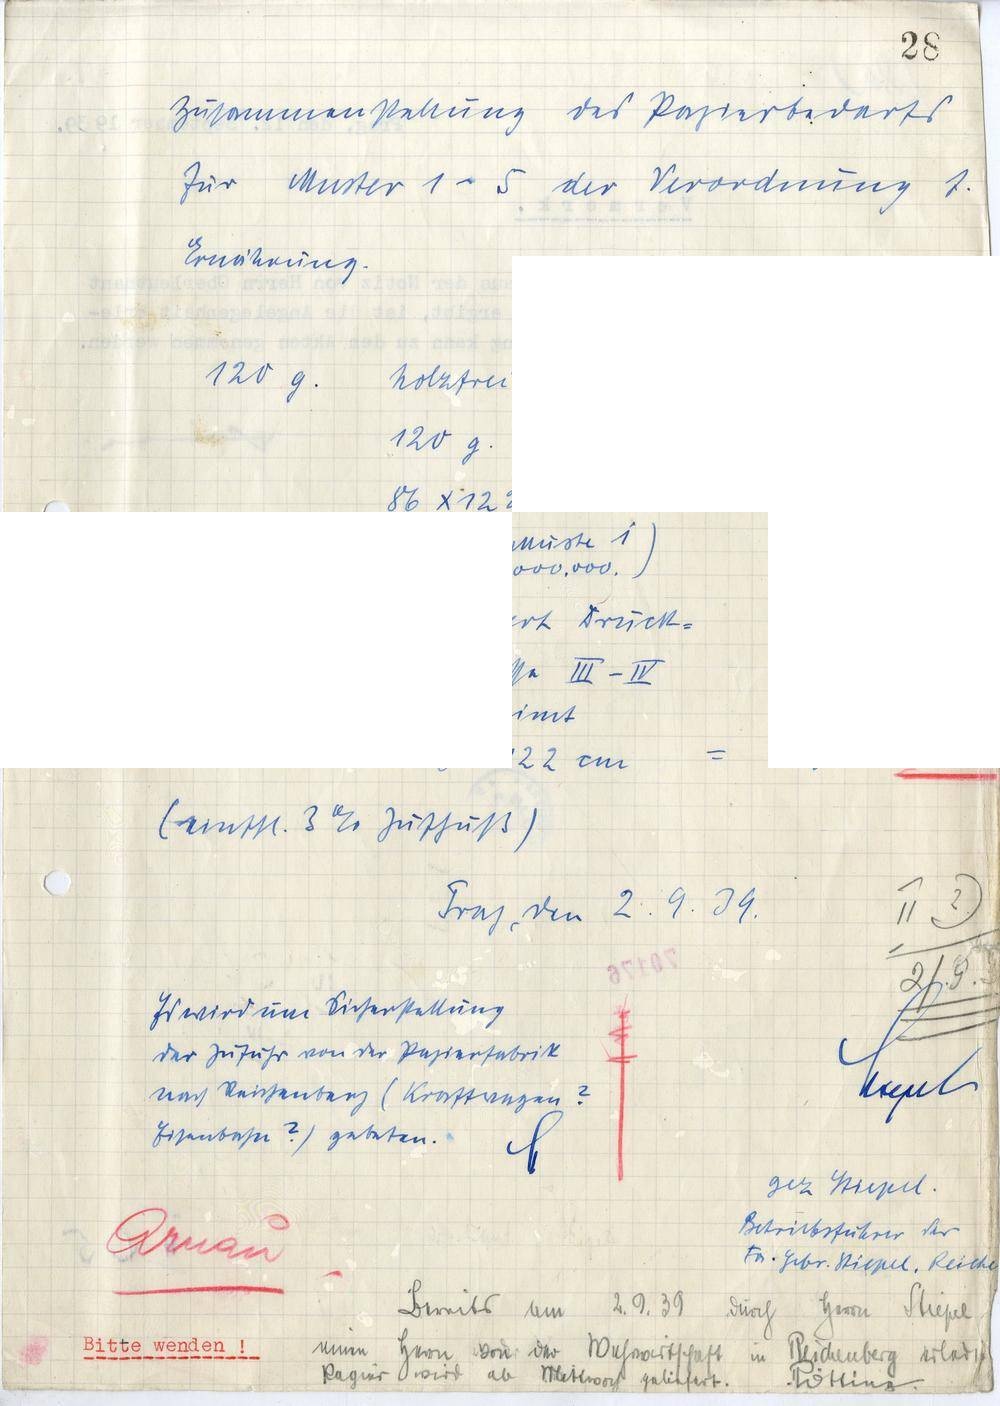 28
Zusammenstellung des Papierbedarfs
für Muster 1 - 5 der Verordnung f.
Ernährung.
120 g. holzfrei
120 g.
86 x 122
Muste 1)
000.000.)
Druck=
III - IV
imt
122 cm =
(einschl. 3 % Zuschuß)
Prag, den 2.9.39.
II
2/9.
Es wird um Sicherstellung
der Zufuhr von der Papierfabrik
nach Reichenberg (Kraftwagen?
Eisenbahn?) gebeten.
70176
Stiepel
gez Stiepel.
Betriebsführer der
Fa. Gebr. Stiepel, Reiche
Arnau
Bereits am 2.9.39 durch Herrn Stiepel
einen Herrn von der Wehrwirtschaft in Reichenberg erledigt
Bitte wenden !
Papier wird ab Mittwoch geliefert.